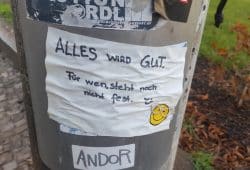 ALLES WIRD GUT.
Für wen, steht noch
nicht fest.
ANDOR